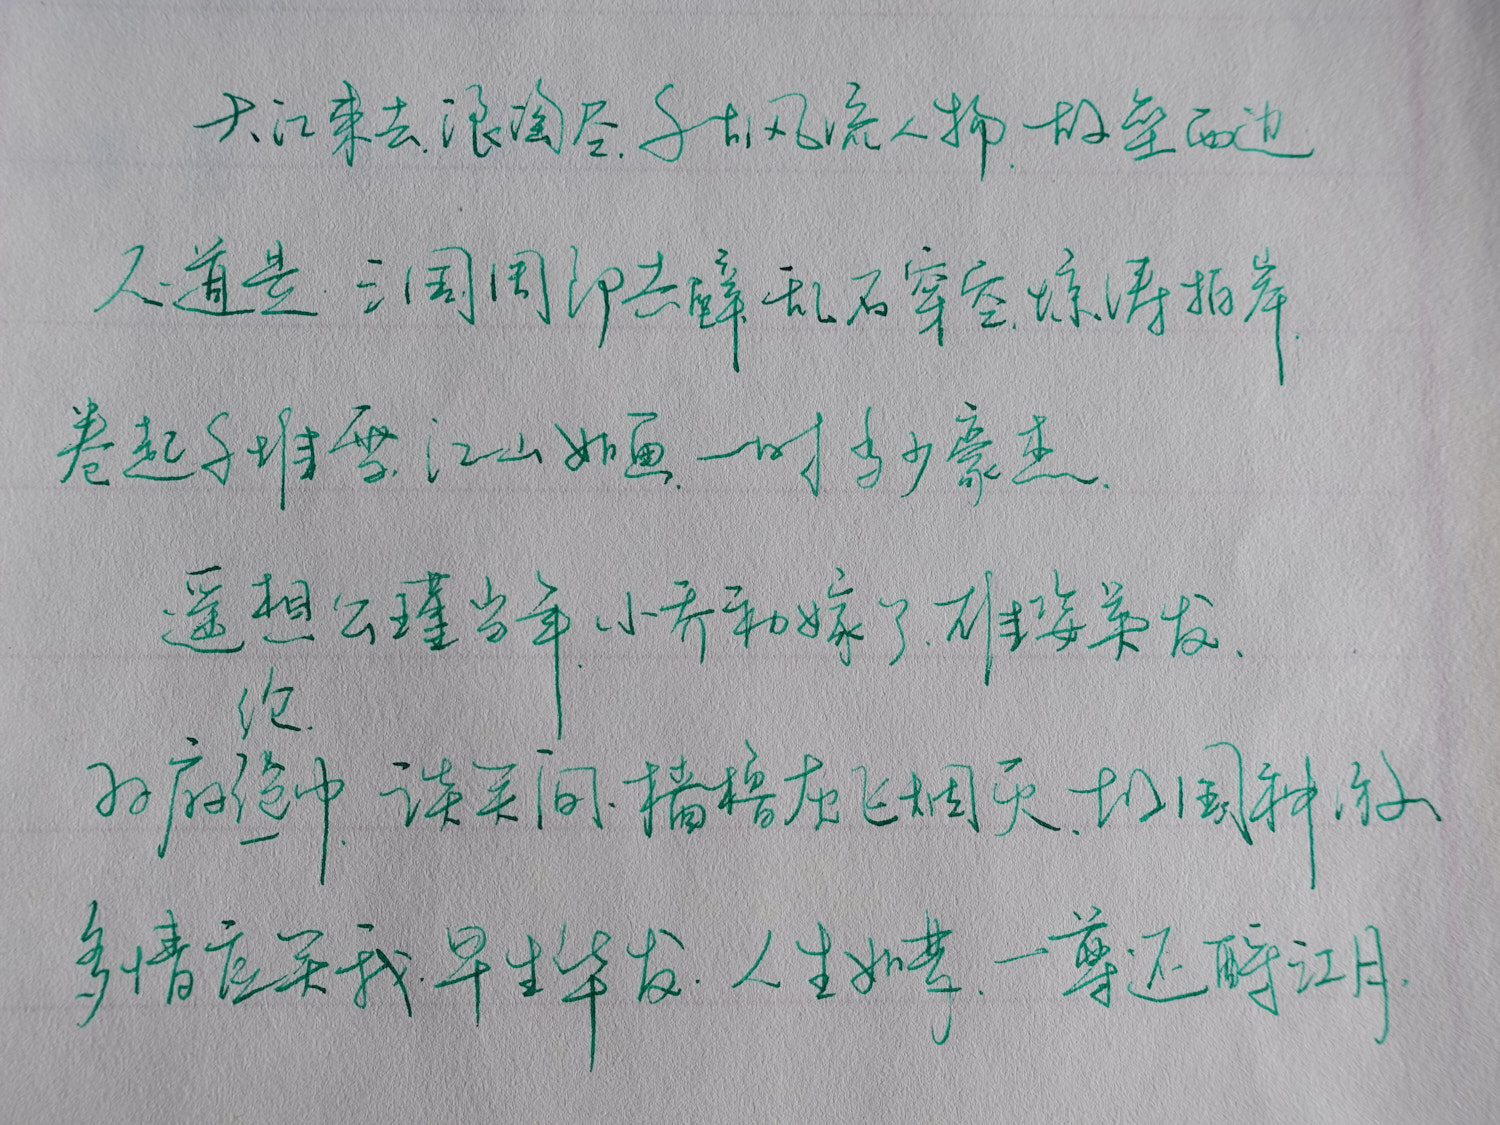 大江东去.浪淘尽.千古风流人物.故垒西边
人道是.三国周郎赤壁.乱石穿空.惊涛拍岸.
卷起千堆雪.江山如画.一时多少豪杰.
遥想公瑾当年.小乔初嫁了.雄姿英发.
纶.
羽扇纶巾.谈笑间.樯橹灰飞烟灭.故国神游
多情应笑我.早生华发.人生如梦.一尊还酹江月.